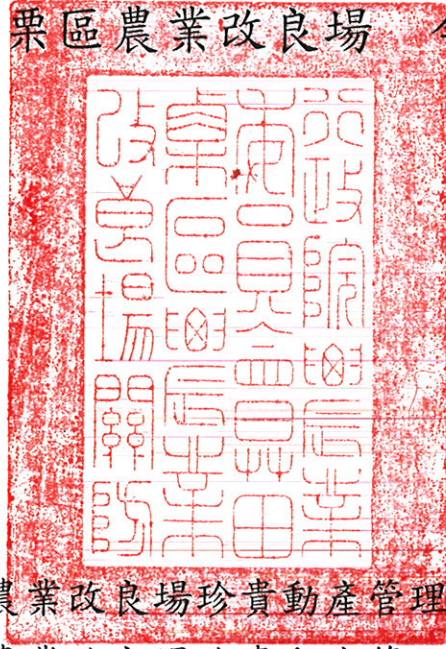 栗區農業改良場
行政院農業
委員會苗
栗區農業
改良場關防
農業改良場珍貴動產管理